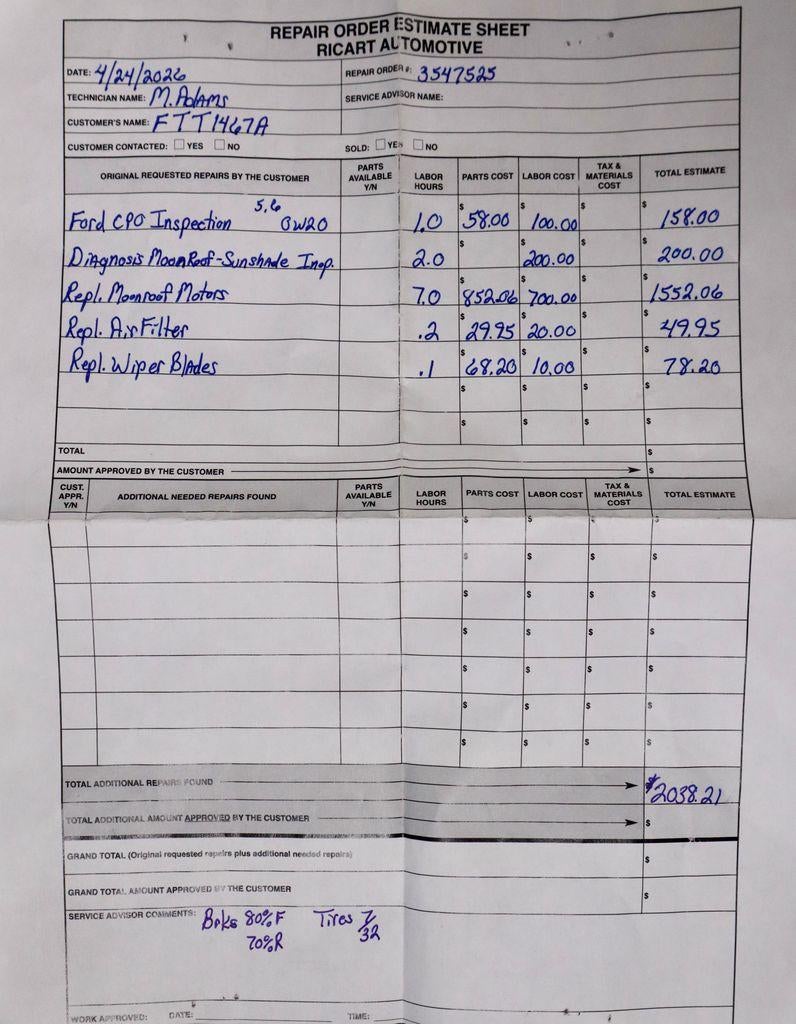 REPAIR ORDER ESTIMATE SHEET
RICART AUTOMOTIVE
DATE: 4/24/2026 REPAIR ORDER #: 3547525
TECHNICIAN NAME: M. Adams SERVICE ADVISOR NAME:
CUSTOMER'S NAME: FTT1467A
CUSTOMER CONTACTED: ☐ YES ☐ NO SOLD: ☐ YES ☐ NO
ORIGINAL REQUESTED REPAIRS BY THE CUSTOMER PARTS AVAILABLE Y/N LABOR HOURS PARTS COST LABOR COST TAX & MATERIALS COST TOTAL ESTIMATE
Ford CPO Inspection 5.6 0W20 1.0 $58.00 $100.00 $ $158.00
Diagnosis MoonRoof-Sunshade Inop. 2.0 $ $200.00 $ $200.00
Repl. Moonroof Motors 7.0 $852.06 $700.00 $ $1552.06
Repl. Air Filter .2 $29.95 $20.00 $ $49.95
Repl. Wiper Blades .1 $68.20 $10.00 $ $78.20
$ $ $ $
$ $ $ $
TOTAL $
AMOUNT APPROVED BY THE CUSTOMER $
CUST. APPR. Y/N ADDITIONAL NEEDED REPAIRS FOUND PARTS AVAILABLE Y/N LABOR HOURS PARTS COST LABOR COST TAX & MATERIALS COST TOTAL ESTIMATE
$ $ $ $
$ $ $ $
$ $ $ $
$ $ $ $
$ $ $ $
$ $ $ $
$ $ $ $
TOTAL ADDITIONAL REPAIRS FOUND $2038.21
TOTAL ADDITIONAL AMOUNT APPROVED BY THE CUSTOMER $
GRAND TOTAL (Original requested repairs plus additional needed repairs) $
GRAND TOTAL AMOUNT APPROVED BY THE CUSTOMER $
SERVICE ADVISOR COMMENTS: Brks 80% F Tires 7/32
70% R
WORK APPROVED: DATE: TIME: